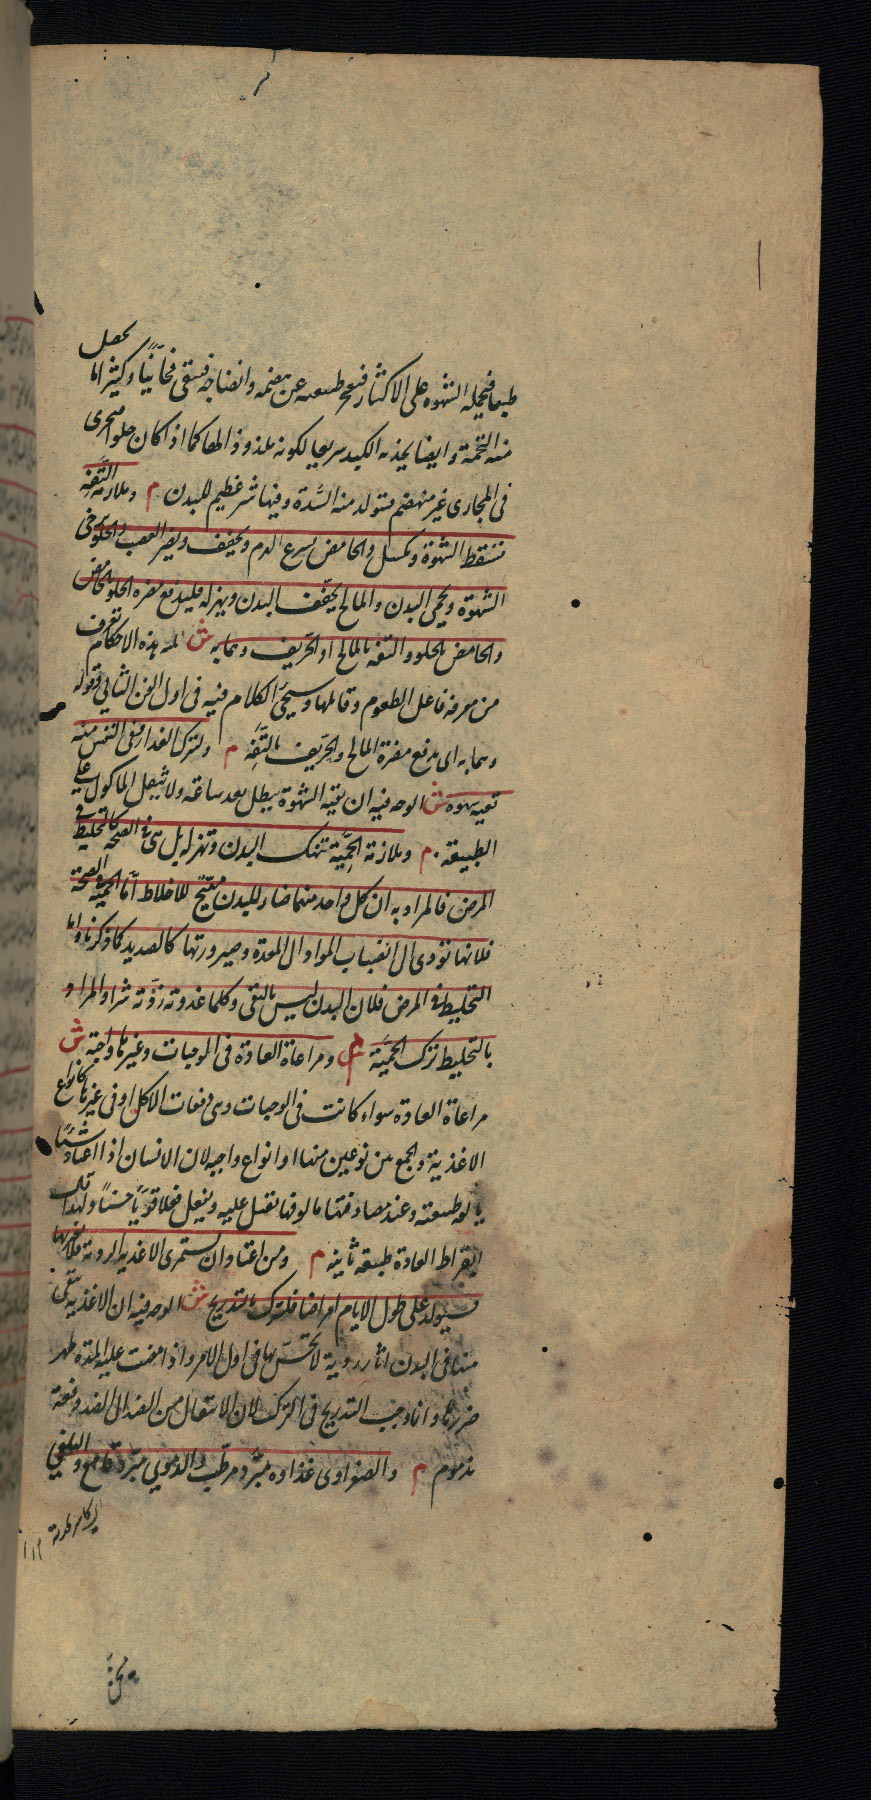 يحصل
طبعا فيحمله الشهوة على الاكثار فتعجز طبيعته عن هضمه وانضاجه فيبقى فجا نيا وكثيرا ما
منه التخمة وايضا يجذبه الكبد سريعا لكونه ملذوذا لها كما اذا كان حلوا فيجرى
فى المجارى غير منهضم فيتولد منه السدة وفيها شر عظيم للبدن م وملازمة التفه
تسقط الشهوة وتكسل والحامض يسرع الهرم ويجفف ويضر العصب والحلو يرخى
الشهوة ويحمى البدن والمالح يجفف البدن ويهزله فليدفع مضرة الحلو الحامض
والحامض بالحلو والتفه بالمالح او الحريف وهما به ش لمية هذه الاحكام تعرف
من معرفة فاعل الطعوم وقابلها وسيجئ الكلام فيه فى اول الفن الثانى وقوله
وهما به اى يدفع مضرة المالح والحريف بالتفه م وليترك الغذاء وفى النفس منه
بقية شهوة ش الوجه فيه ان بقية الشهوة يبطل بعد ساعة ولا يثقل الماكول على
الطبيعة م وملازمة الحمية تنهك البدن وتهزله بل هى فى الصحة كالتخليط فى
المرض فالمراد به ان كل واحد منهما ضار للبدن مهيج للاخلاط اما الحمية فى الصحة
فلانها تؤدى الى انصباب المواد الى المعدة وصيرورتها كالصديد كما ذكرنا واما
التخليط فى المرض فلان البدن ليس بالنقى وكلما غذوته زدته شرا والمراد
بالتخليط ترك الحمية م ومراعاة العادة فى الوجبات وغيرها واجبة ش
مراعاة العادة سواء كانت فى الوجبات وهى دفعات الاكل او فى غيرها كانواع
الاغذية والجمع بين نوعين منها او انواع واجبة لان الانسان اذا اعتاد شيئا
يالفه طبيعته وعند مصادفتها مالوفها تقبل عليه ويفعل فعلا قويا حسنا ولهذا قال
ابقراط العادة طبيعة ثانية م ومن اعتاد ان يستمرى الاغذية الردية فلا يغتر بها
فسيولد على طول الايام امراضا فليترك بالتدريج ش الوجه فيه ان الاغذية تبقى
منها فى البدن اثار ردية لا يحس بها فى اول الامر واذا مضت عليه المدة ظهر
ضررها وانما وجب التدريج فى الترك لان الانتقال من الضد الى الضد دفعة
مذموم م والصفراوى غذاؤه مبرد ومرطب والدموى مبرد قامع والبلغمى